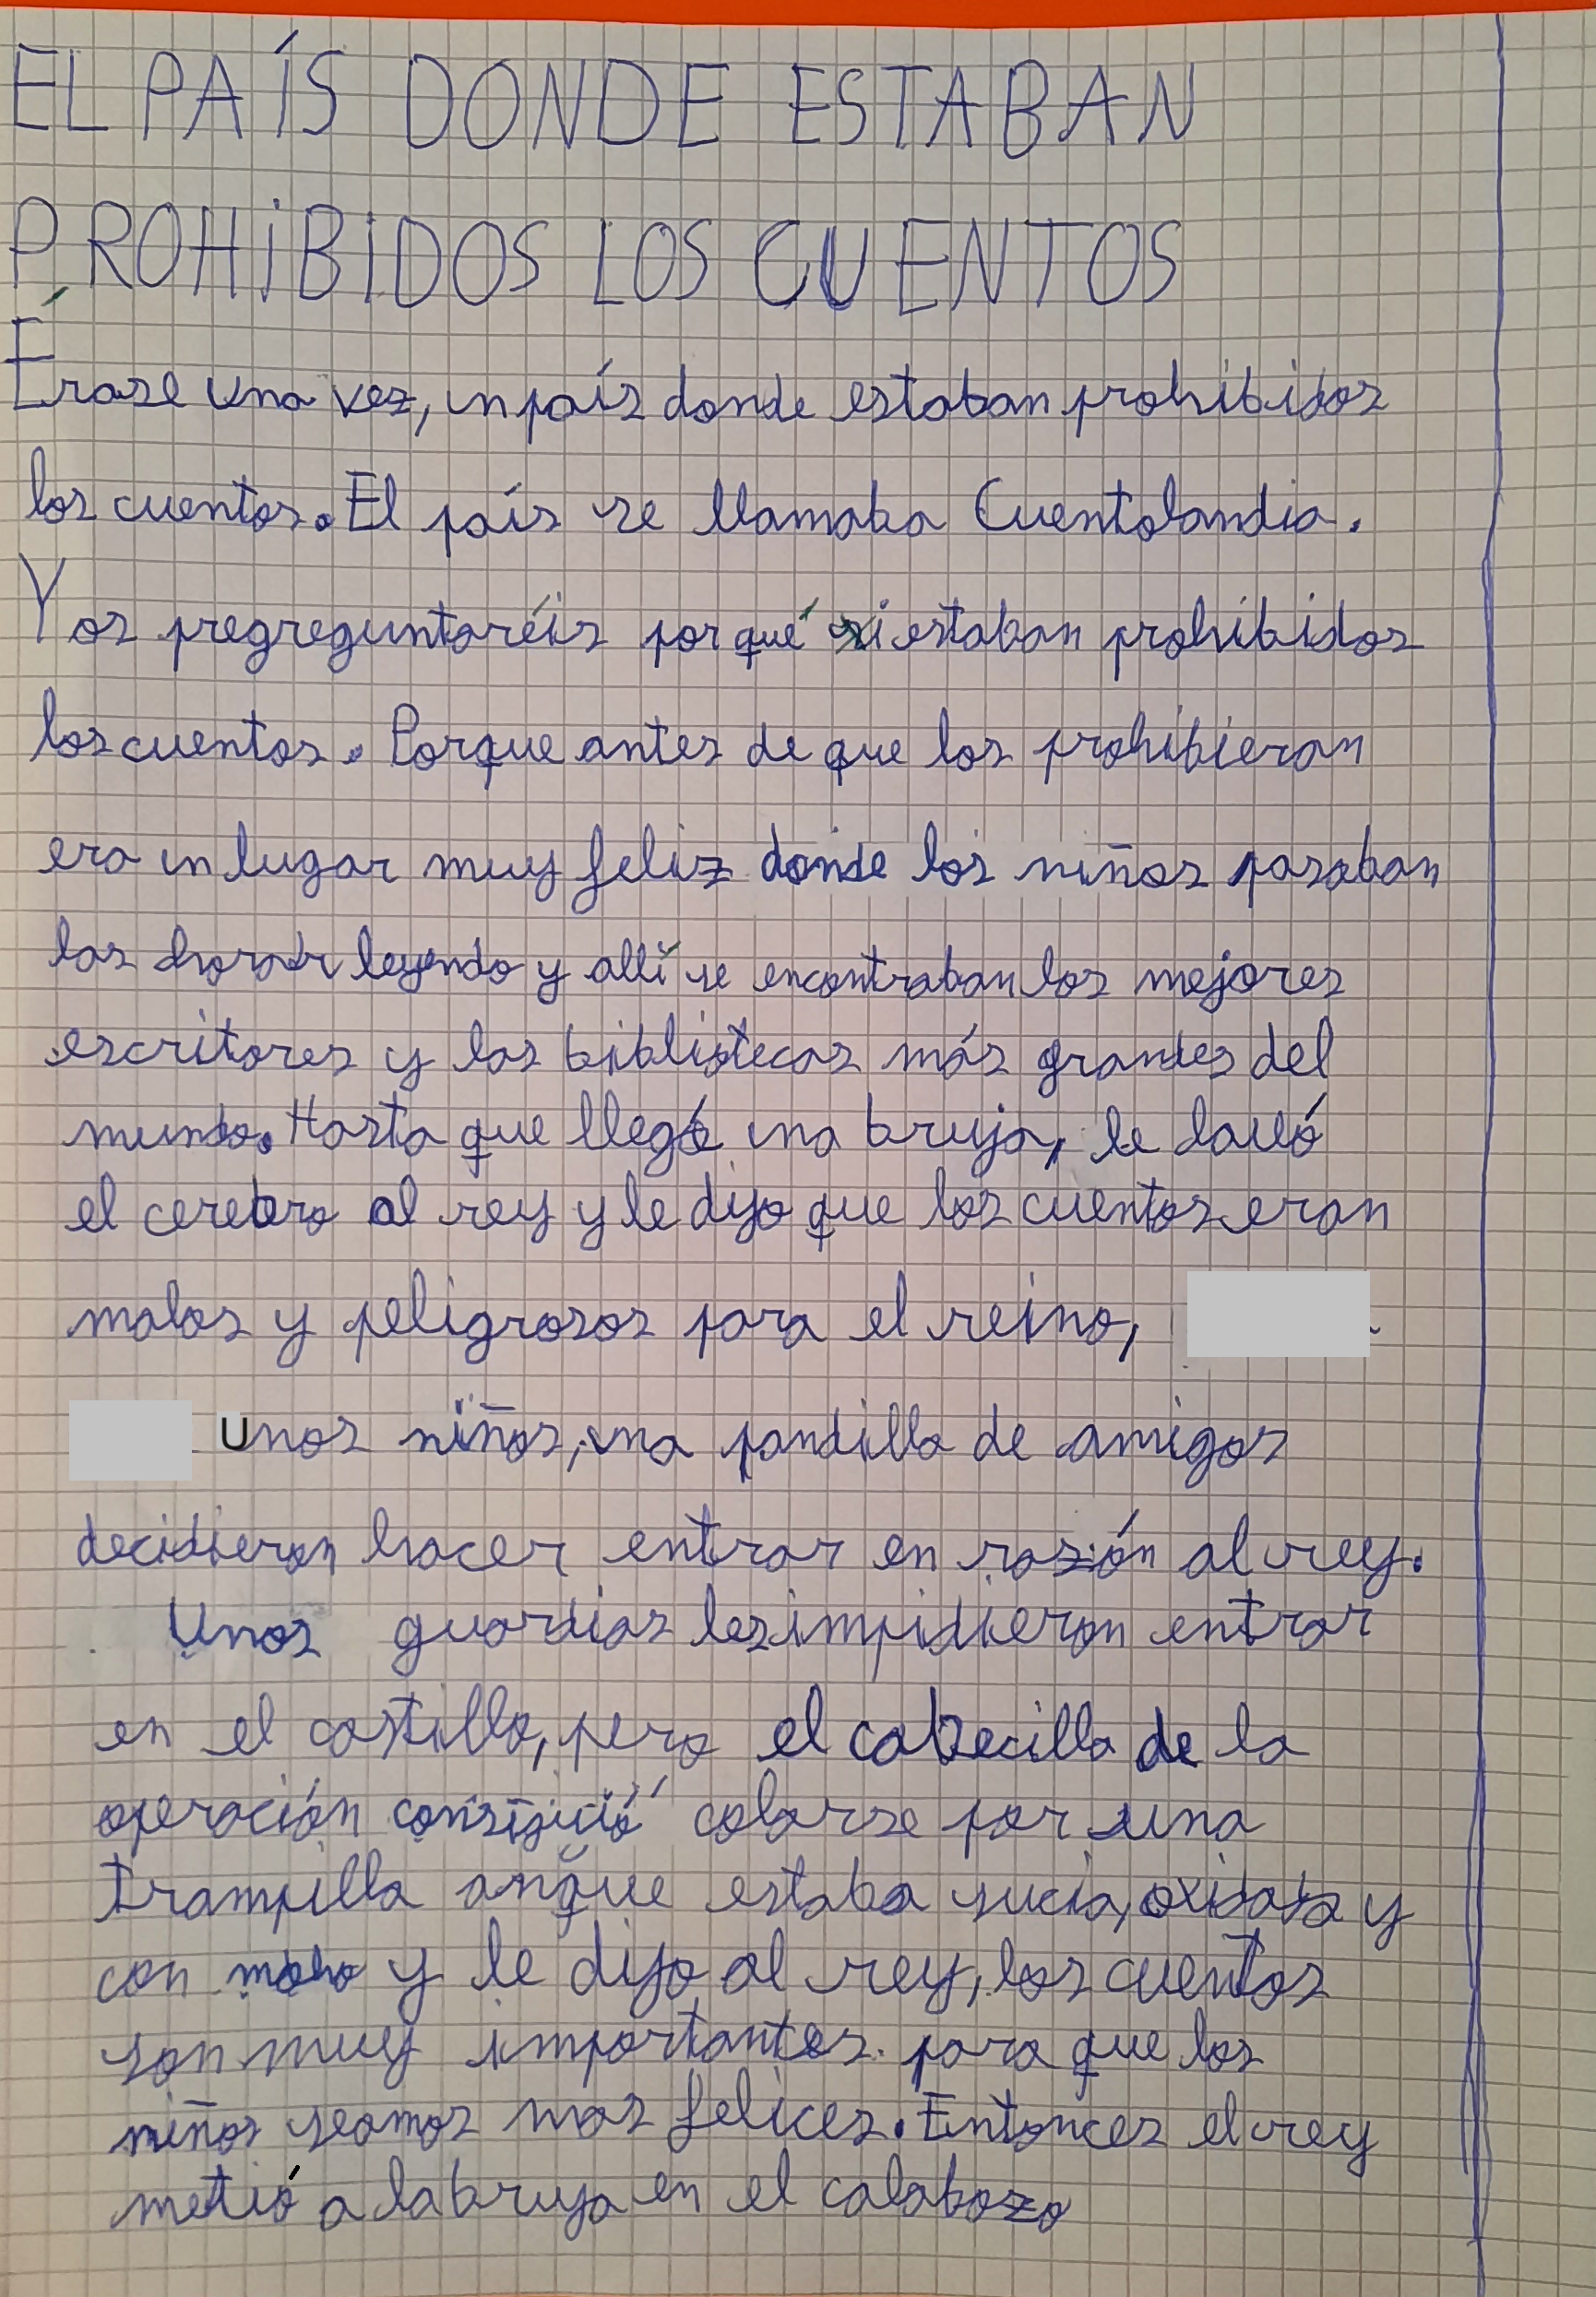 EL PAÍS DONDE ESTABAN
PROHIBIDOS LOS CUENTOS
Érase una vez, un país donde estaban prohibidos
los cuentos. El país se llamaba Cuentolandia.
Y os pregreguntaréis por qué estaban prohibidos
los cuentos. Porque antes de que los prohibieran
era un lugar muy feliz donde los niños pasaban
las horas leyendo y allí se encontraban los mejores
escritores y las bibliotecas más grandes del
mundo. Hasta que llegó una bruja, le lavó
el cerebro al rey y le dijo que los cuentos eran
malos y peligrosos para el reino,
unos niños, una pandilla de amigos
decidieron hacer entrar en razón al rey.
Unos guardias les impidieron entrar
en el castillo, pero el cabecilla de la
operación consiguió colarse por una
trampilla anque estaba sucia, oxidada y
con moho y le dijo al rey, los cuentos
son muy importantes para que los
niños seamos mas felices. Entonces el rey
metió a la bruja en el calabozo